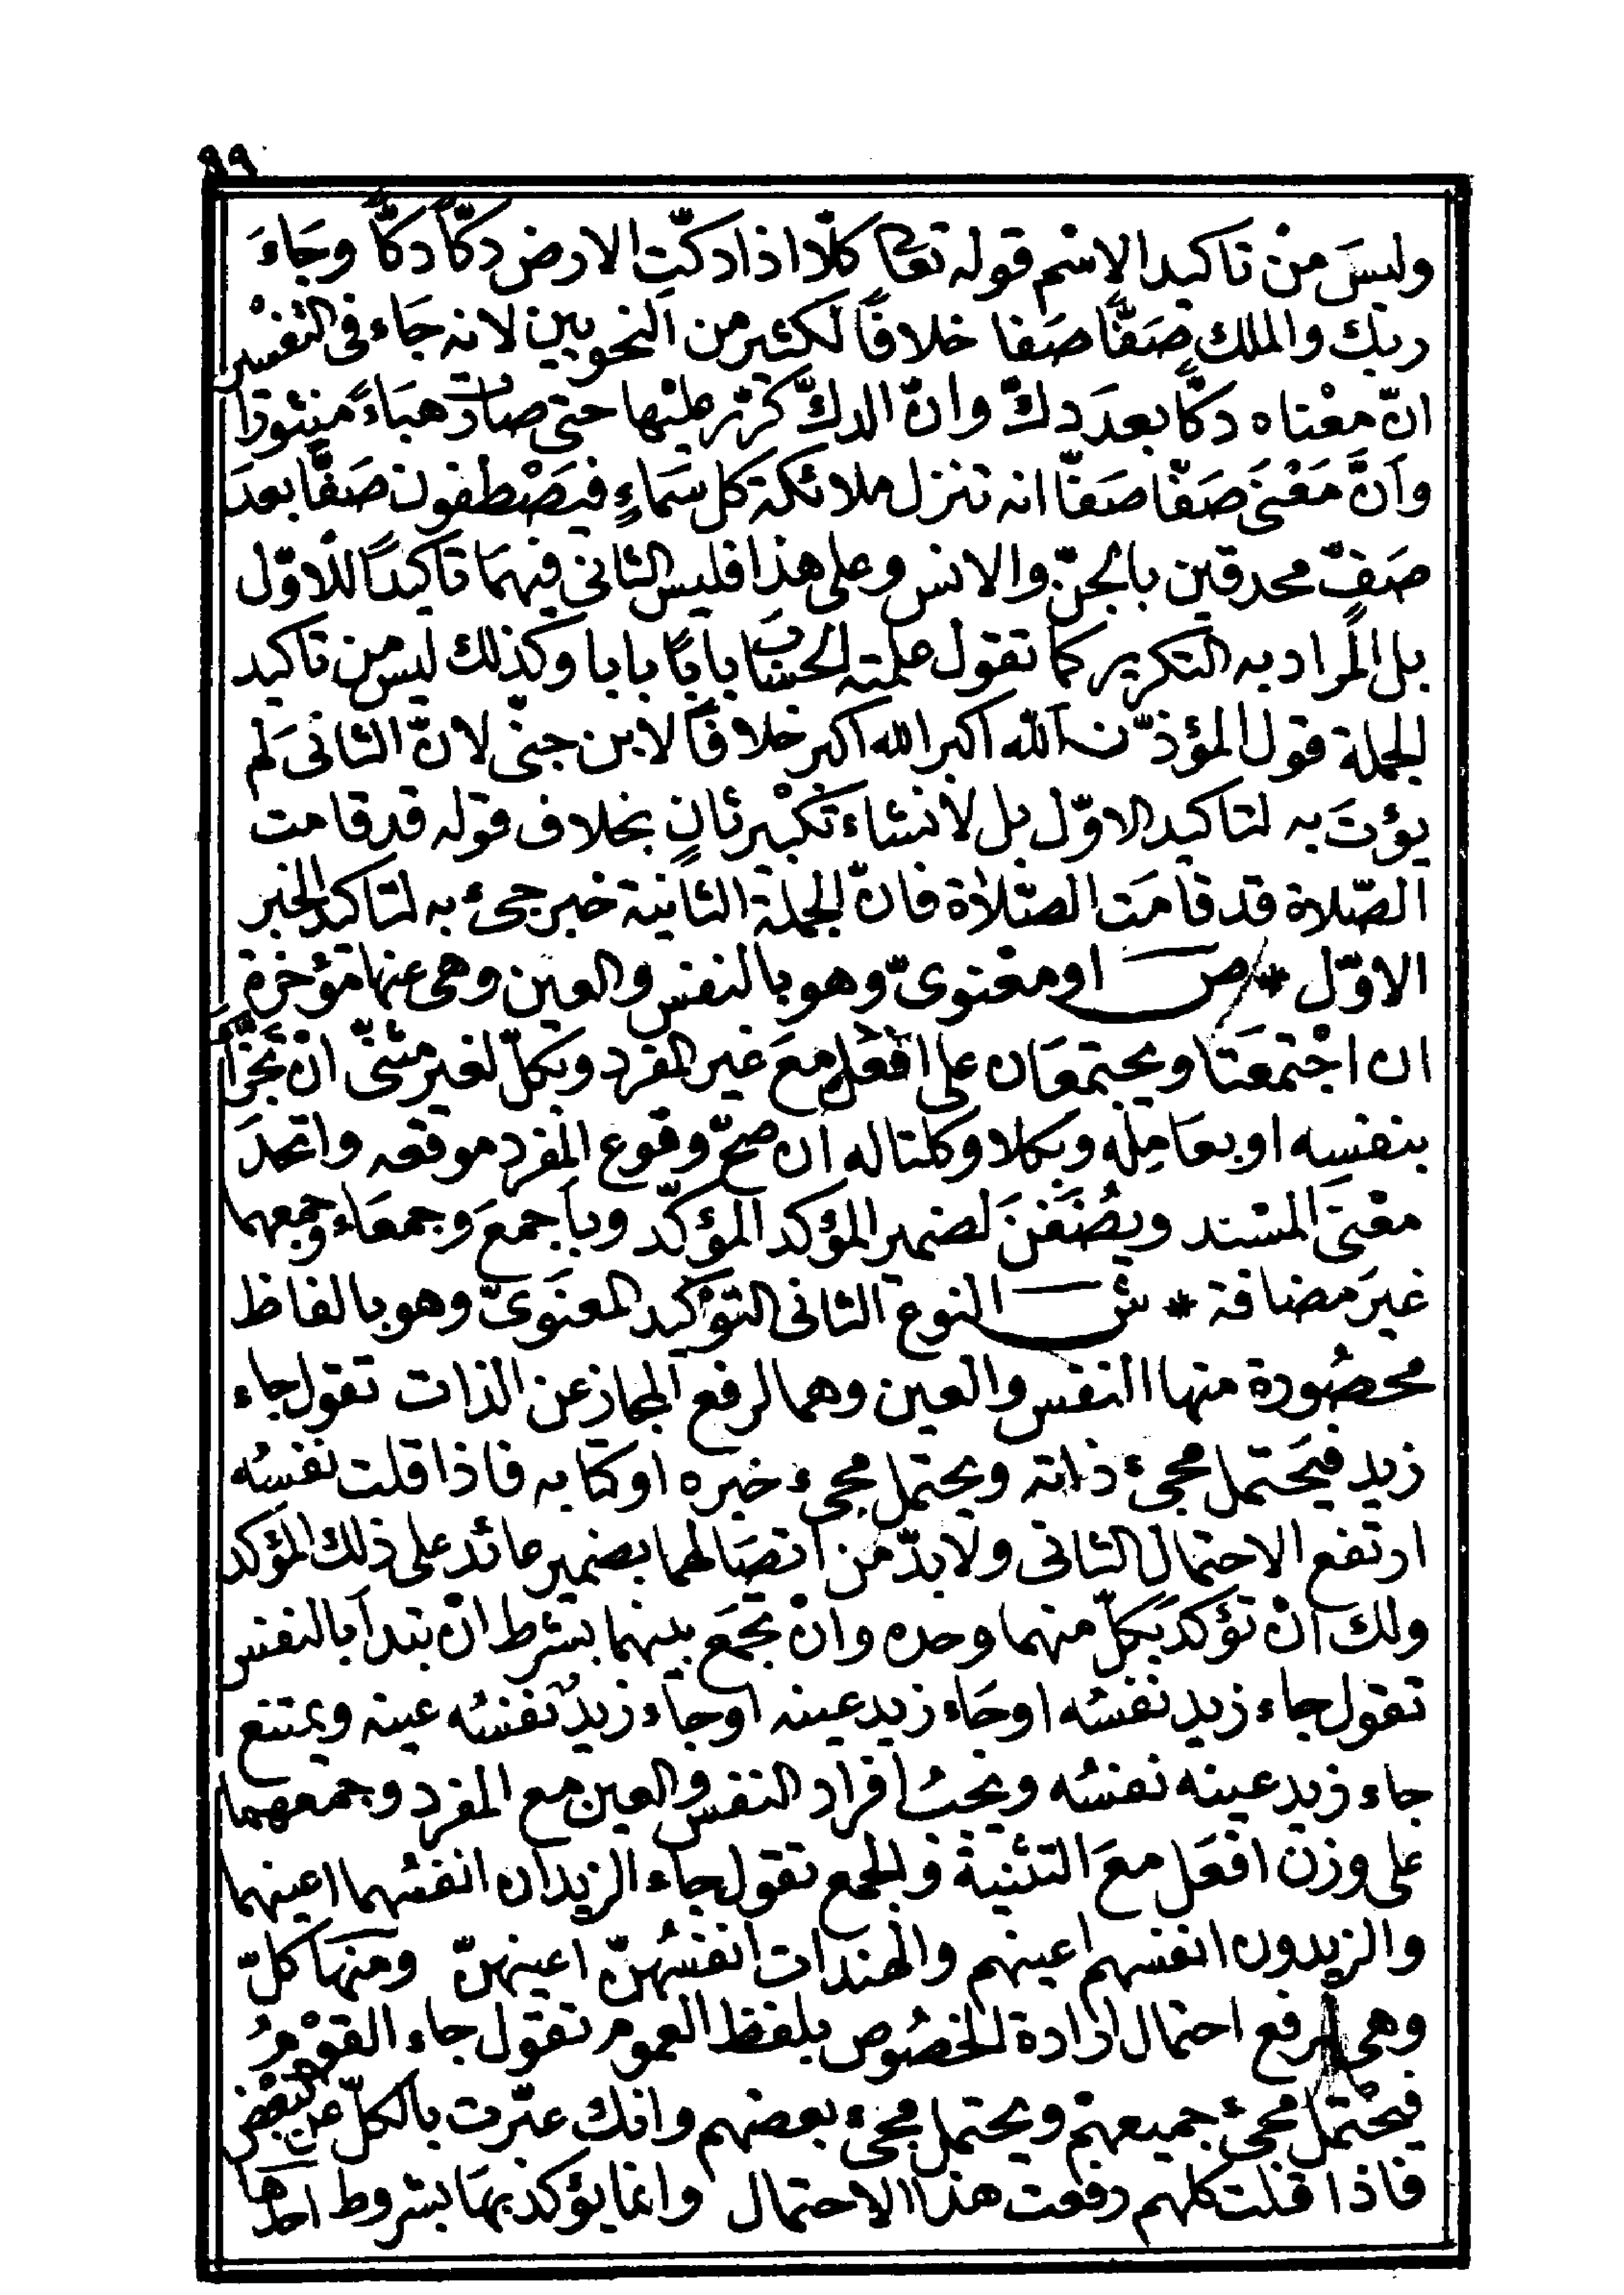 ٩٩
وليسَ منْ تاكيد الاسْم قوله تعا كلّا اذا دكّت الارض دكّاً دكّاً وجَاءَ
ربّك والملك صَفًّا صَفا خلافاً لكثير من النحويين لانه جَاء فى التفسْير
انّ معْناه دكًّا بعدَ دكّ وانّ الدكّ كرّر عليْها حتى صارت هبَاءً منثورا
وأنَّ مَعْنَى صَفّا صَفّا انه تنزل ملائكة كل سَماءٍ فيَصْطفون صَفًّا بعدَ
صَفّ محدقين بالجنّ والانس وعلى هذا فليس الثانى فيهمَا تاكيدًا للاوّل
بل المراد به التكرير كما تقول علمته الحسَابَ بابًا بابا وكذلك ليس من تاكيد
الجملة قول المؤذّن الله اكبر الله اكبر خلافاً لابن جنى لانّ الثانى لم
يؤتَ به لتاكيد الاوّل بل لانشاء تكْبير ثانٍ بخلاف قوله قد قامت
الصّلاة قد قامَت الصّلاة فانّ الجملة الثانية خبر جئ به لتاكيد الخبر
الاوّل * ص او معْنوىّ وهو بالنفس والعين وهى عنها مؤخرة
ان اجْتمعَتا ويجتمعَان على افعُل معَ غير المفرد وبكلّ لغير مثنىّ انْ تجَزّأ
بنفسِه او بعَامِله وبكلا وكلتا له ان صحّ وقوع المفرد موقعه واتحدَ
معْنىَ المسْند ويُضَفْنَ لضمير المؤكد المؤكّد وبأجمعَ وجمعَاء وجمعهما
غيرَ مضافة * ش النوع الثانى التوْكيد المعنَوىّ وهو بالفاظ
محصُورة منها النفس والعين وهما لرفع المجاز عن الذات تقول جاء
زيد فيَحتمل مجئ ذاته ويحتمل مجىء خبره او كتابه فاذا قلت نفسُه
ارتفع الاحتمال الثانى ولابدّ من اتصَالهما بضمير عائد على ذلك المؤكد
ولك انْ تؤكد بكلّ منهما وحده وانْ تجمَع بينهما بشرط انْ تبدأ بالنفس
تقول جاء زيد نفسُه او جَاء زيد عينه او جاء زيدٌ نفسُه عينه ويمتنع
جاء زيد عينه نفسُه ويجبُ افراد النفس والعين مع المفرد وجمعهما
على وزن افعَل معَ التثنية والجمع تقول جاء الزيدان انفسُهما اعينهما
والزيدون انفسهم اعينهم والهندات انفسُهنّ اعينهنّ ومنهَا كلّ
وهى لرفع احتمال ارادة الخصُوص بلفظ العموم تقول جاء القوْمُ
فيحْتمل مجئ جميعهمْ ويحتمل مجىء بعضهم وانك عبّرت بالكلّ عن البعْض
فاذا قلت كلهم رفعت هذا الاحتمال وانما يؤكد بهَا بشروط احدها